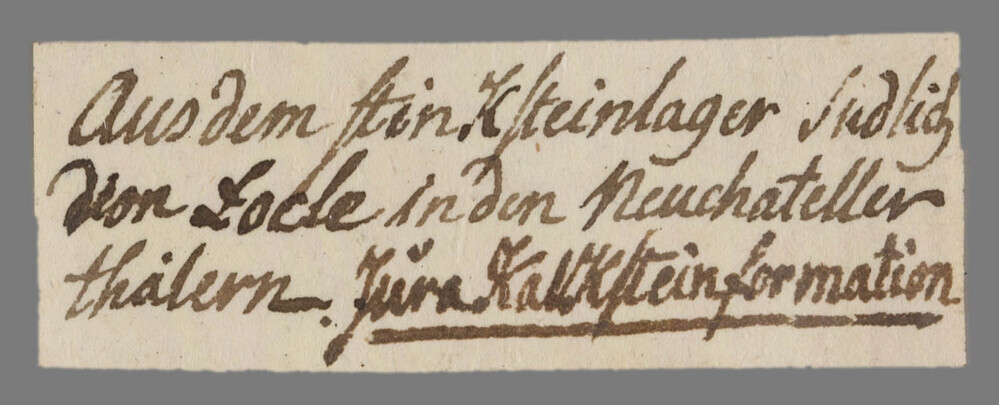 Aus dem stinKsteinlager sudlich
von Locle in den Neuchateller
thälern. Jura KalkKsteinformation